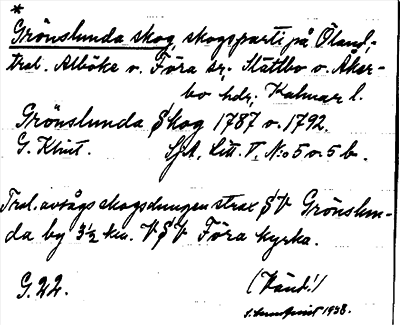 *
Grönslunda skog, skogsparti på Öland,
trol. Alböke o. Föra sr. Slättbo o. Åker-
bo hdr; Kalmar l.
Grönslunda Skog 1787 o. 1792.
G. Klint. Sjk. Litt. V. No: 5 o. 5 b.
Trol. avsågs skogsdungen strax SV Grönslun-
da by 3½ km. VSV Föra kyrka.
G. 22. (Känd!)
1938.